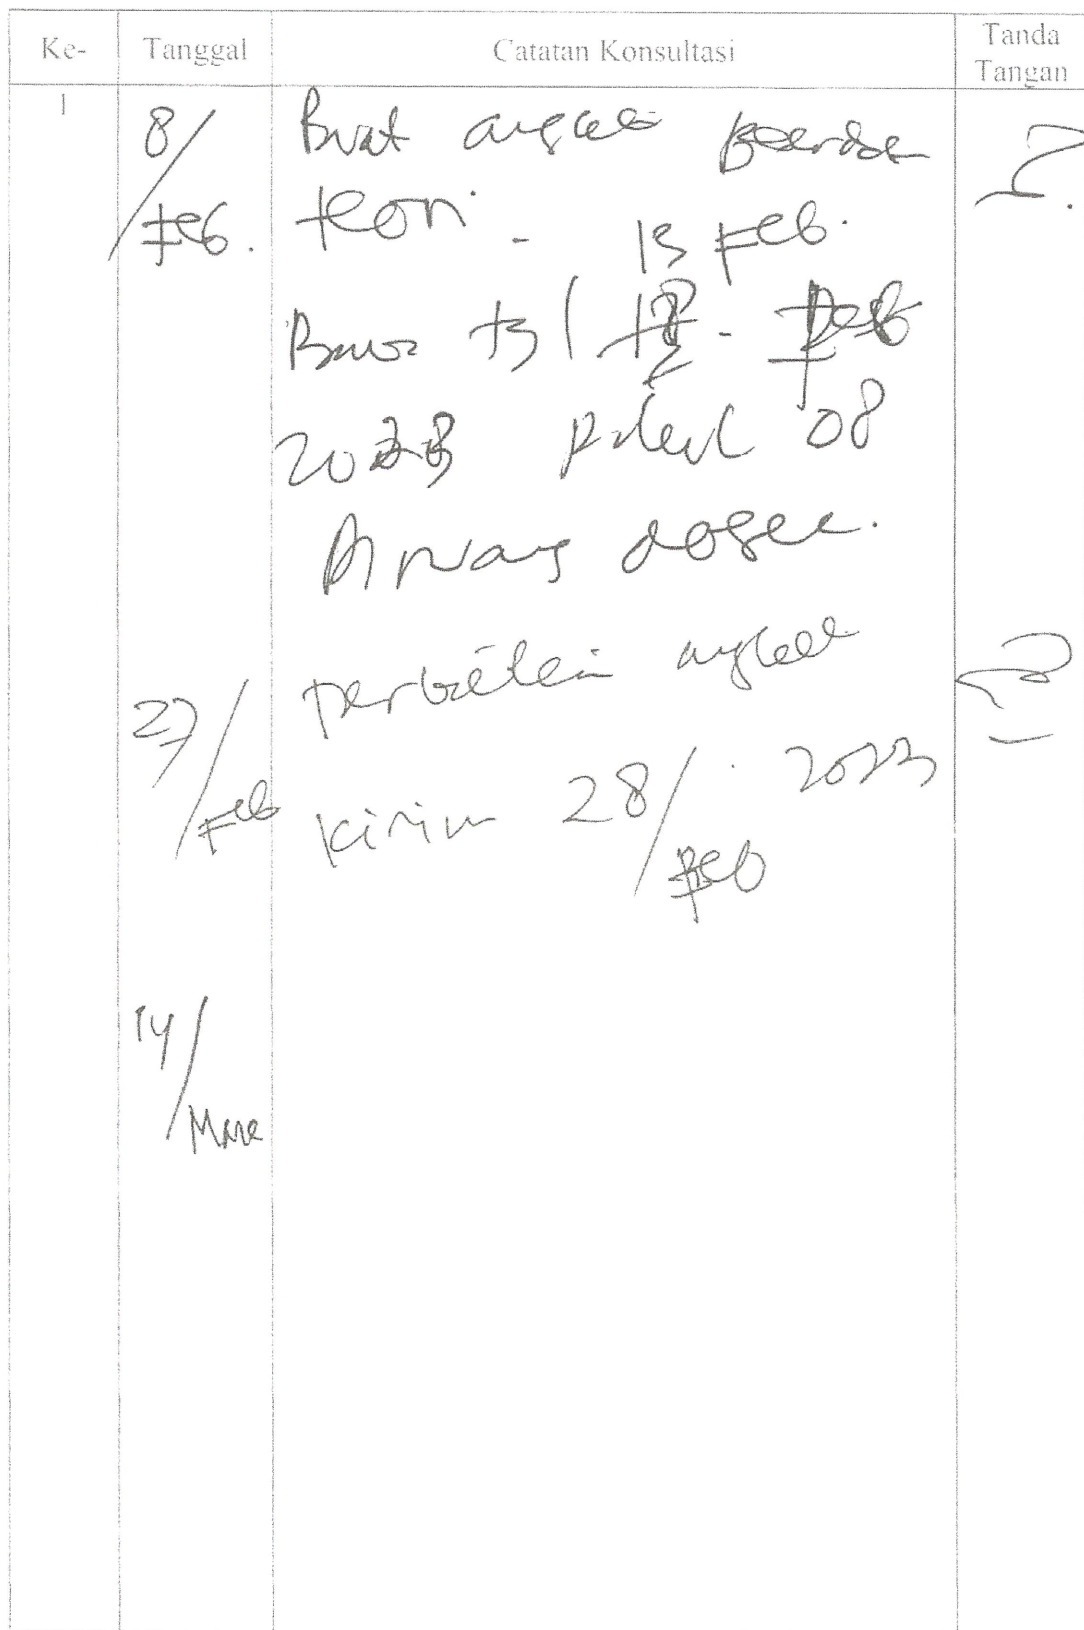 Ke- Tanggal Catatan Konsultasi Tanda Tangan
1 8/Feb. Buat angket
teori. 13 Feb.
Bawa tgl
2023 pukul 08
Di ruang dosen.
27/Feb perbaikan angket
kirim 28/Feb 2023
14/Mare